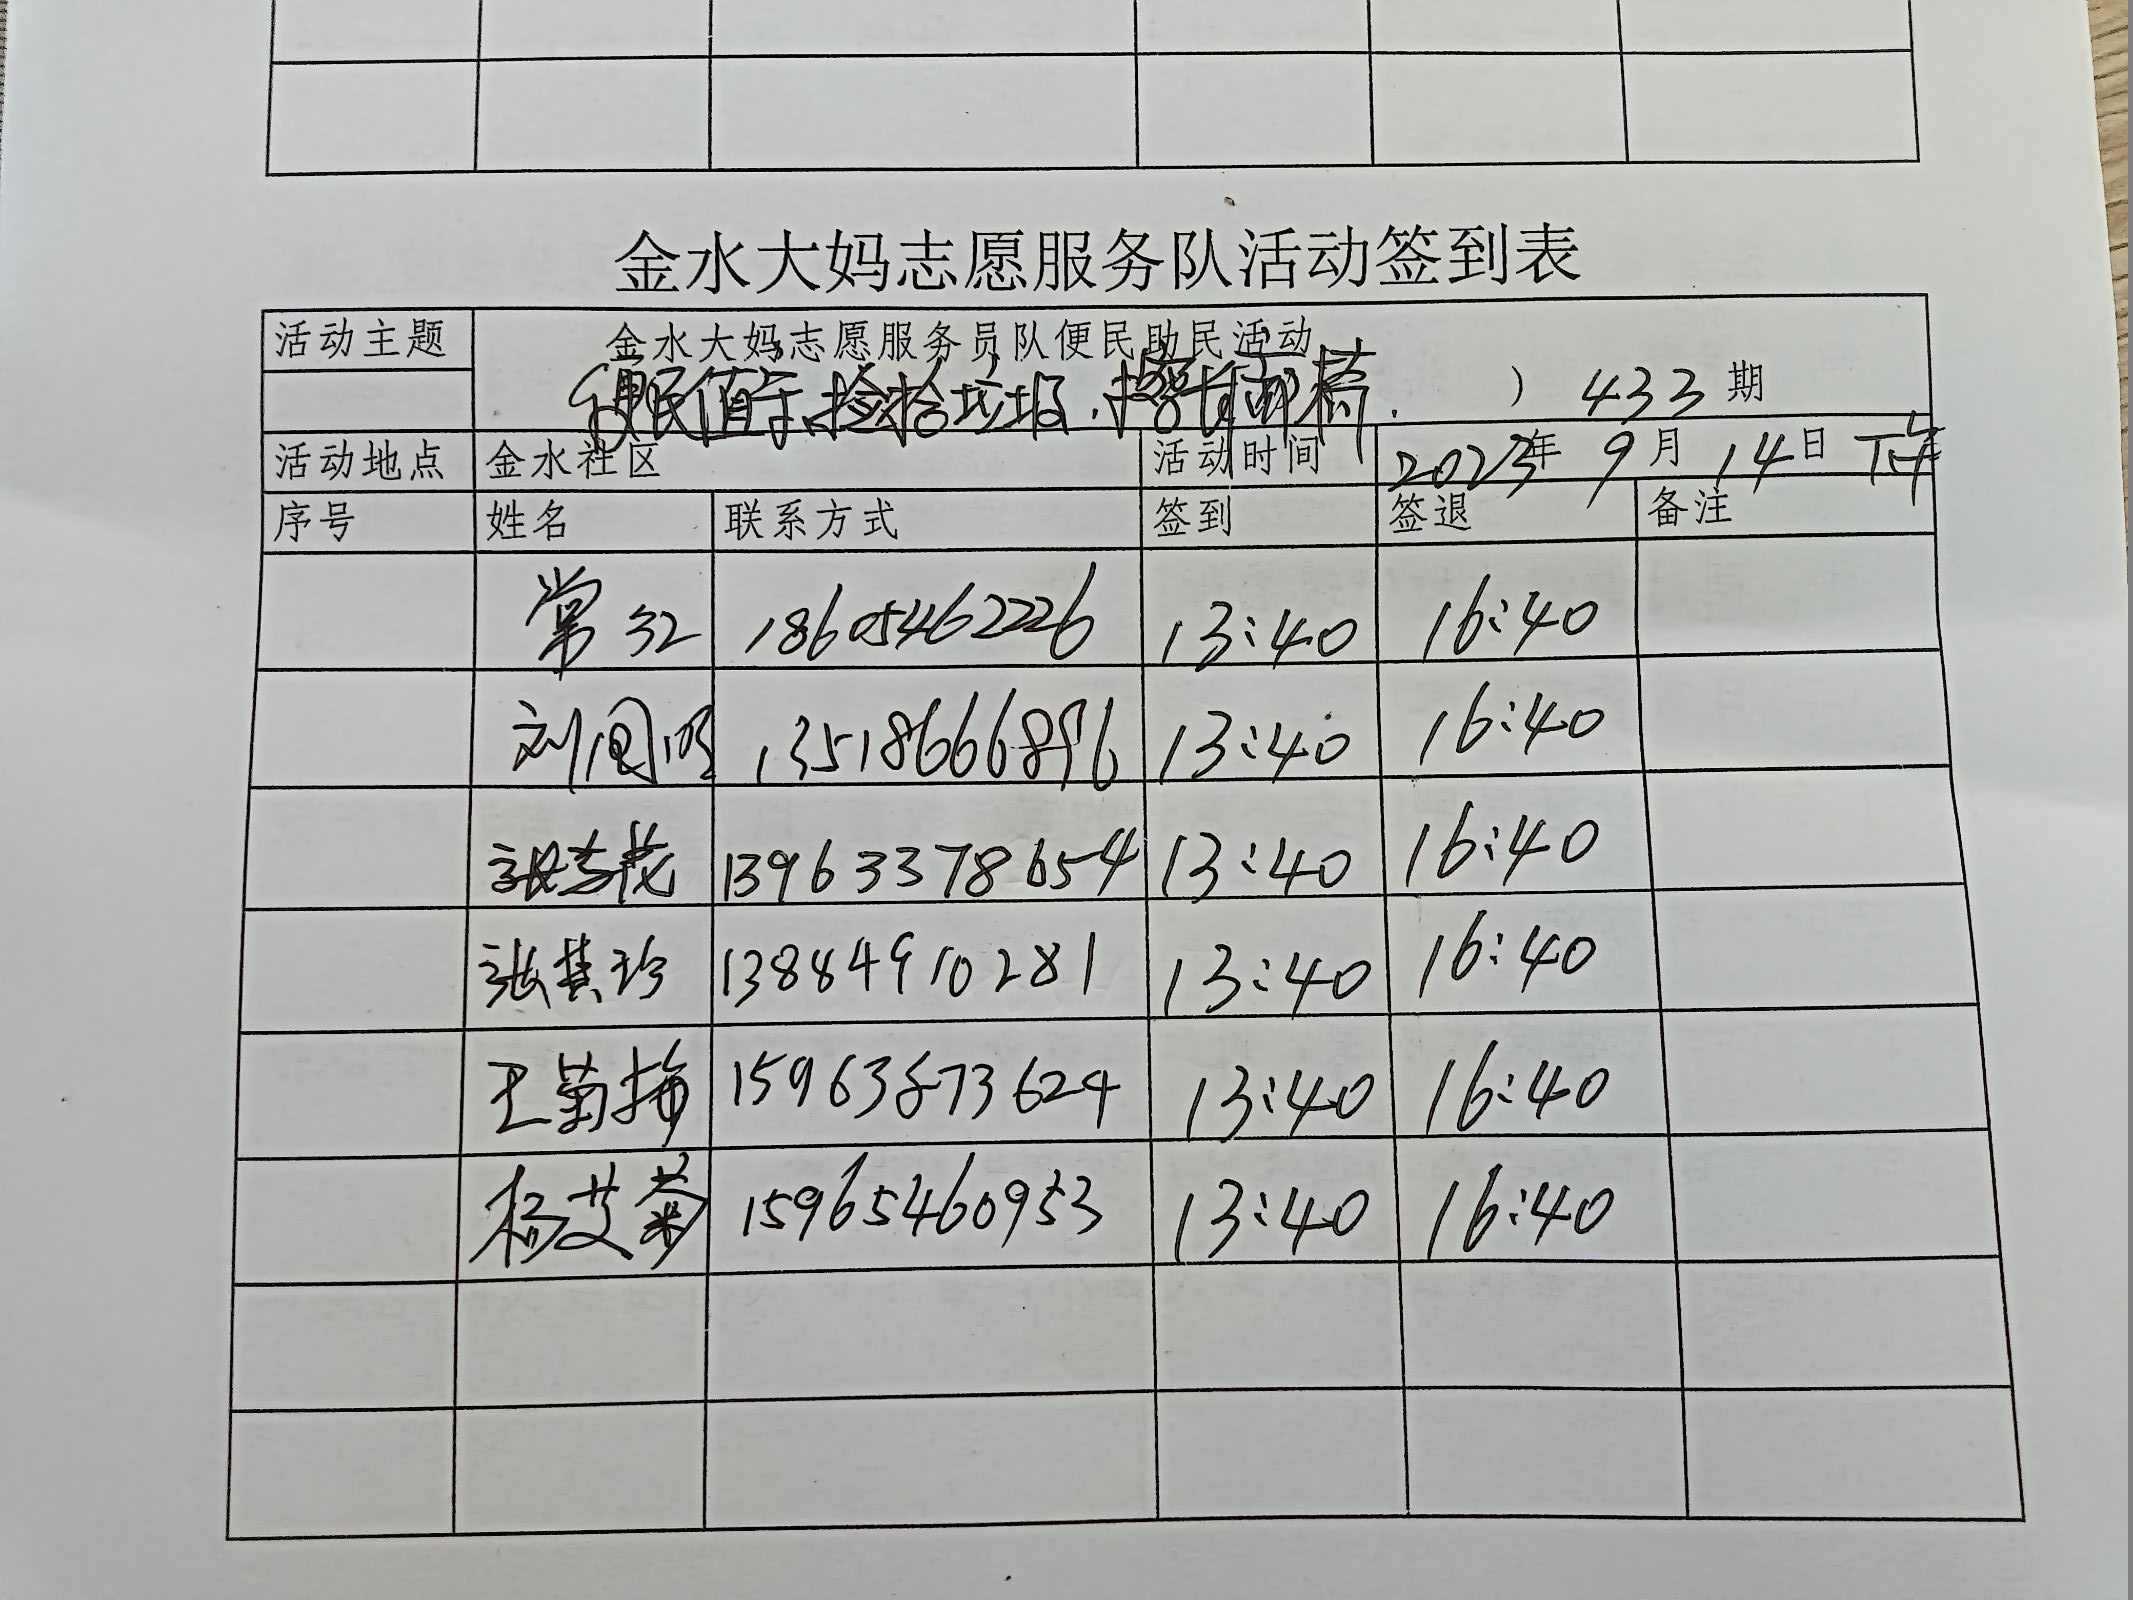 金水大妈志愿服务队活动签到表
活动主题 金水大妈志愿服务员队便民助民活动
便民值守、捡拾垃圾、 ) 433 期
活动地点 金水社区 活动时间 2023年 9月 14日 下午
序号 姓名 联系方式 签到 签退 备注
常红 18605462226 13:40 16:40
刘国明 13518666896 13:40 16:40
13963378654 13:40 16:40
张其珍 13884910281 13:40 16:40
王菊梅 15963873624 13:40 16:40
杨艾菊 15965460953 13:40 16:40